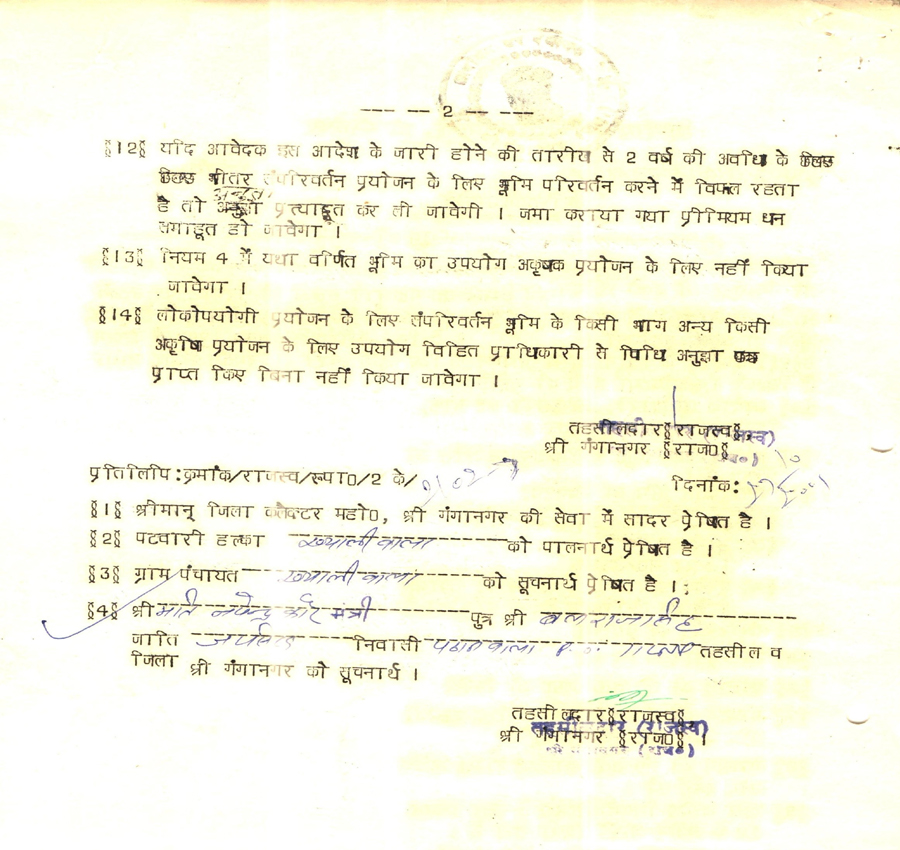 --- -- 2 -- ---
§12§ यदि आवेदक इस आदेश के जारी होने की तारीख से 2 वर्ष की अवधि के
भीतर संपरिवर्तन प्रयोजन के लिए भूमि परिवर्तन करने में विफल रहता
है तो प्रत्याहृत कर ली जावेगी । जमा कराया गया प्रीमियम धन
समाहृत हो जावेगा ।
§13§ नियम 4 में यथा वर्णित भूमि का उपयोग अकृषक प्रयोजन के लिए नहीं किया
जावेगा ।
§14§ लोकोपयोगी प्रयोजन के लिए संपरिवर्तन भूमि के किसी भाग अन्य किसी
अकृषि प्रयोजन के लिए उपयोग विहित प्राधिकारी से विधि अनुज्ञा
प्राप्त किए बिना नहीं किया जावेगा ।
तहसीलदार§राजस्व§
श्री गंगानगर §राज0§
प्रतिलिपि:क्रमांक/राजस्व/रूपा0/2 के/
दिनांक:
§1§ श्रीमान् जिला कलैक्टर महो0, श्री गंगानगर की सेवा में सादर प्रेषित है ।
§2§ पटवारी हल्का ख्यालीवाला को पालनार्थ प्रेषित है ।
§3§ ग्राम पंचायत ख्यालीवाला को सूचनार्थ प्रेषित है ।
§4§ श्रीमति कौर पुत्र श्री
जाति निवासी तहसील व
जिला श्री गंगानगर को सूचनार्थ ।
तहसीलदार§राजस्व§
तहसीलदार (राजस्व)
श्री गंगानगर §राज0§ ।